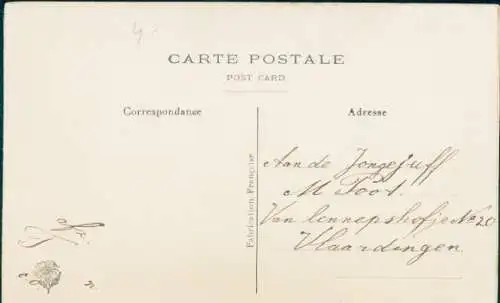 4.
CARTE POSTALE
POST CARD
Correspondance
Adresse
Fabrication Française
Aan de Jongejuff
M Poot.
Van lennepshofje No 20
Vlaardingen